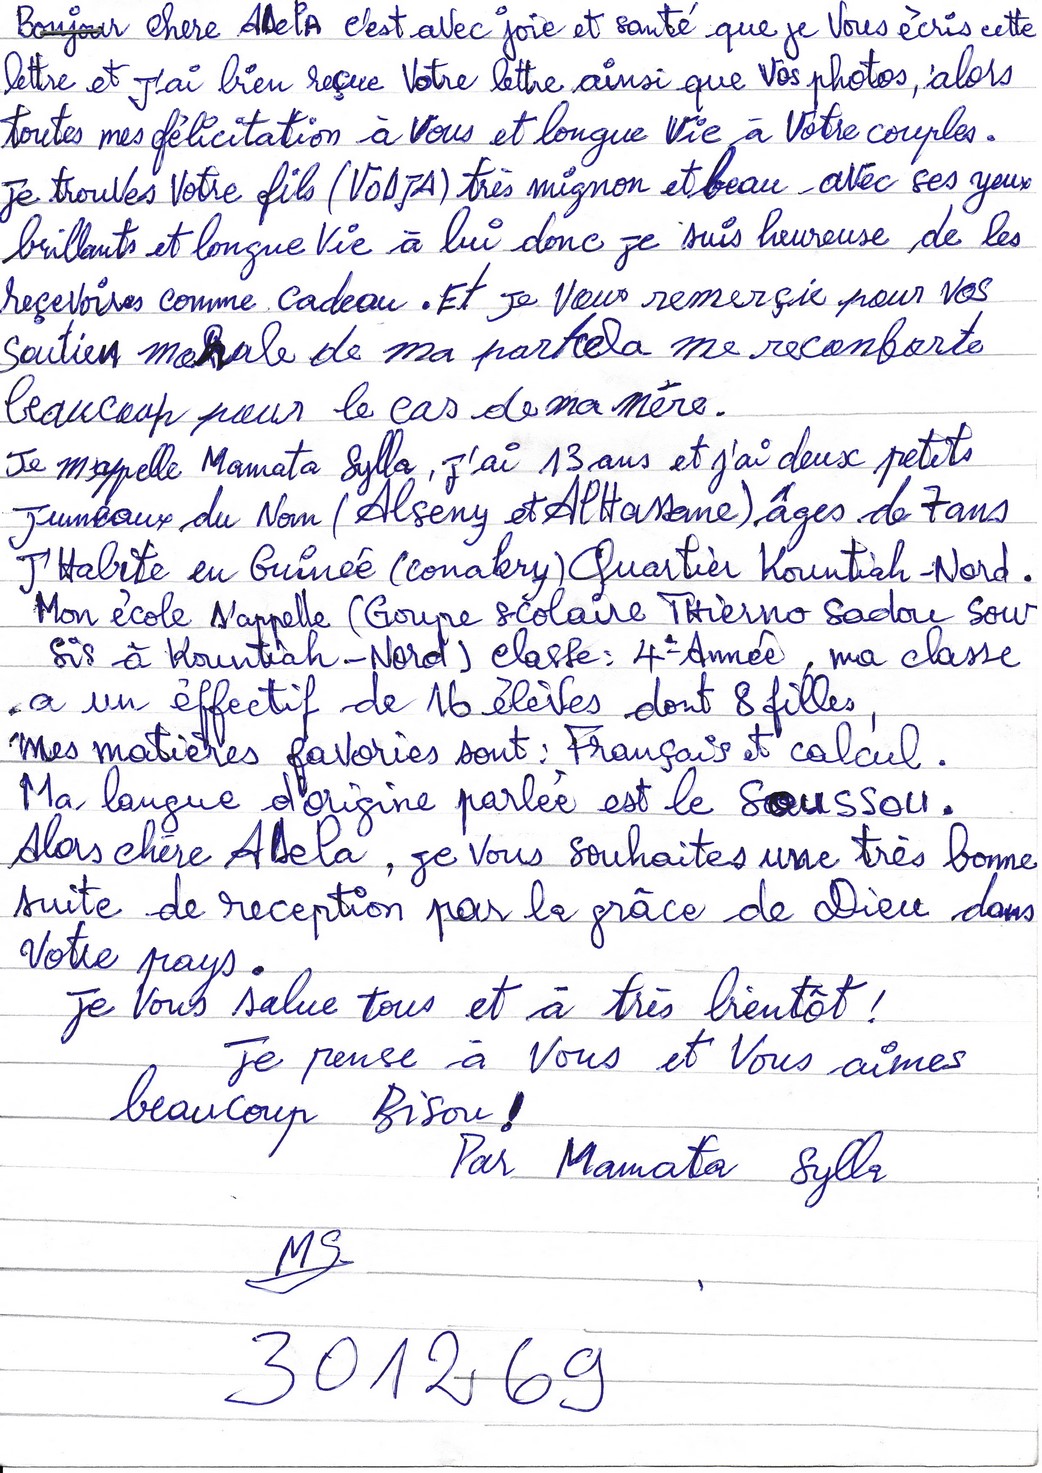 Bonjour chere AdelA c'est avec joie et santé que je vous écris cette
lettre et j'ai bien reçue votre lettre ainsi que vos photos, alors
toutes mes félicitation à vous et longue vie à votre couples.
Je trouves votre fils (VODJA) très mignon et beau avec ses yeux
brillants et longue vie à lui donc je suis heureuse de les
reçevoires comme cadeau. Et je vous remerçie pour vos
soutien morale de ma part cela me reconforte
beaucoup pour le cas de ma mère.
Je m'appelle Mamata Sylla, j'ai 13 ans et j'ai deux petits
jumeaux du Nom (Alseny et AlHassane) âges de 7 ans
J'Habite en Guinée (conakry) Quartier Kountiah-Nord.
Mon école s'appelle (Goupe scolaire THierno Sadou Sow
sis à Kountiah-Nord) classe: 4e Année, ma classe
a un éffectif de 16 élèves dont 8 filles,
Mes matières favories sont: Français et calcul.
Ma langue d'origine parlée est le Soussou.
Alors chère Adela, je vous souhaites une très bonne
suite de reception par la grâce de Dieu dans
votre pays.
Je vous salue tous et à très bientôt!
Je pense à vous et vous aimes
beaucoup Bisou!
Par Mamata Sylla
MS
301269